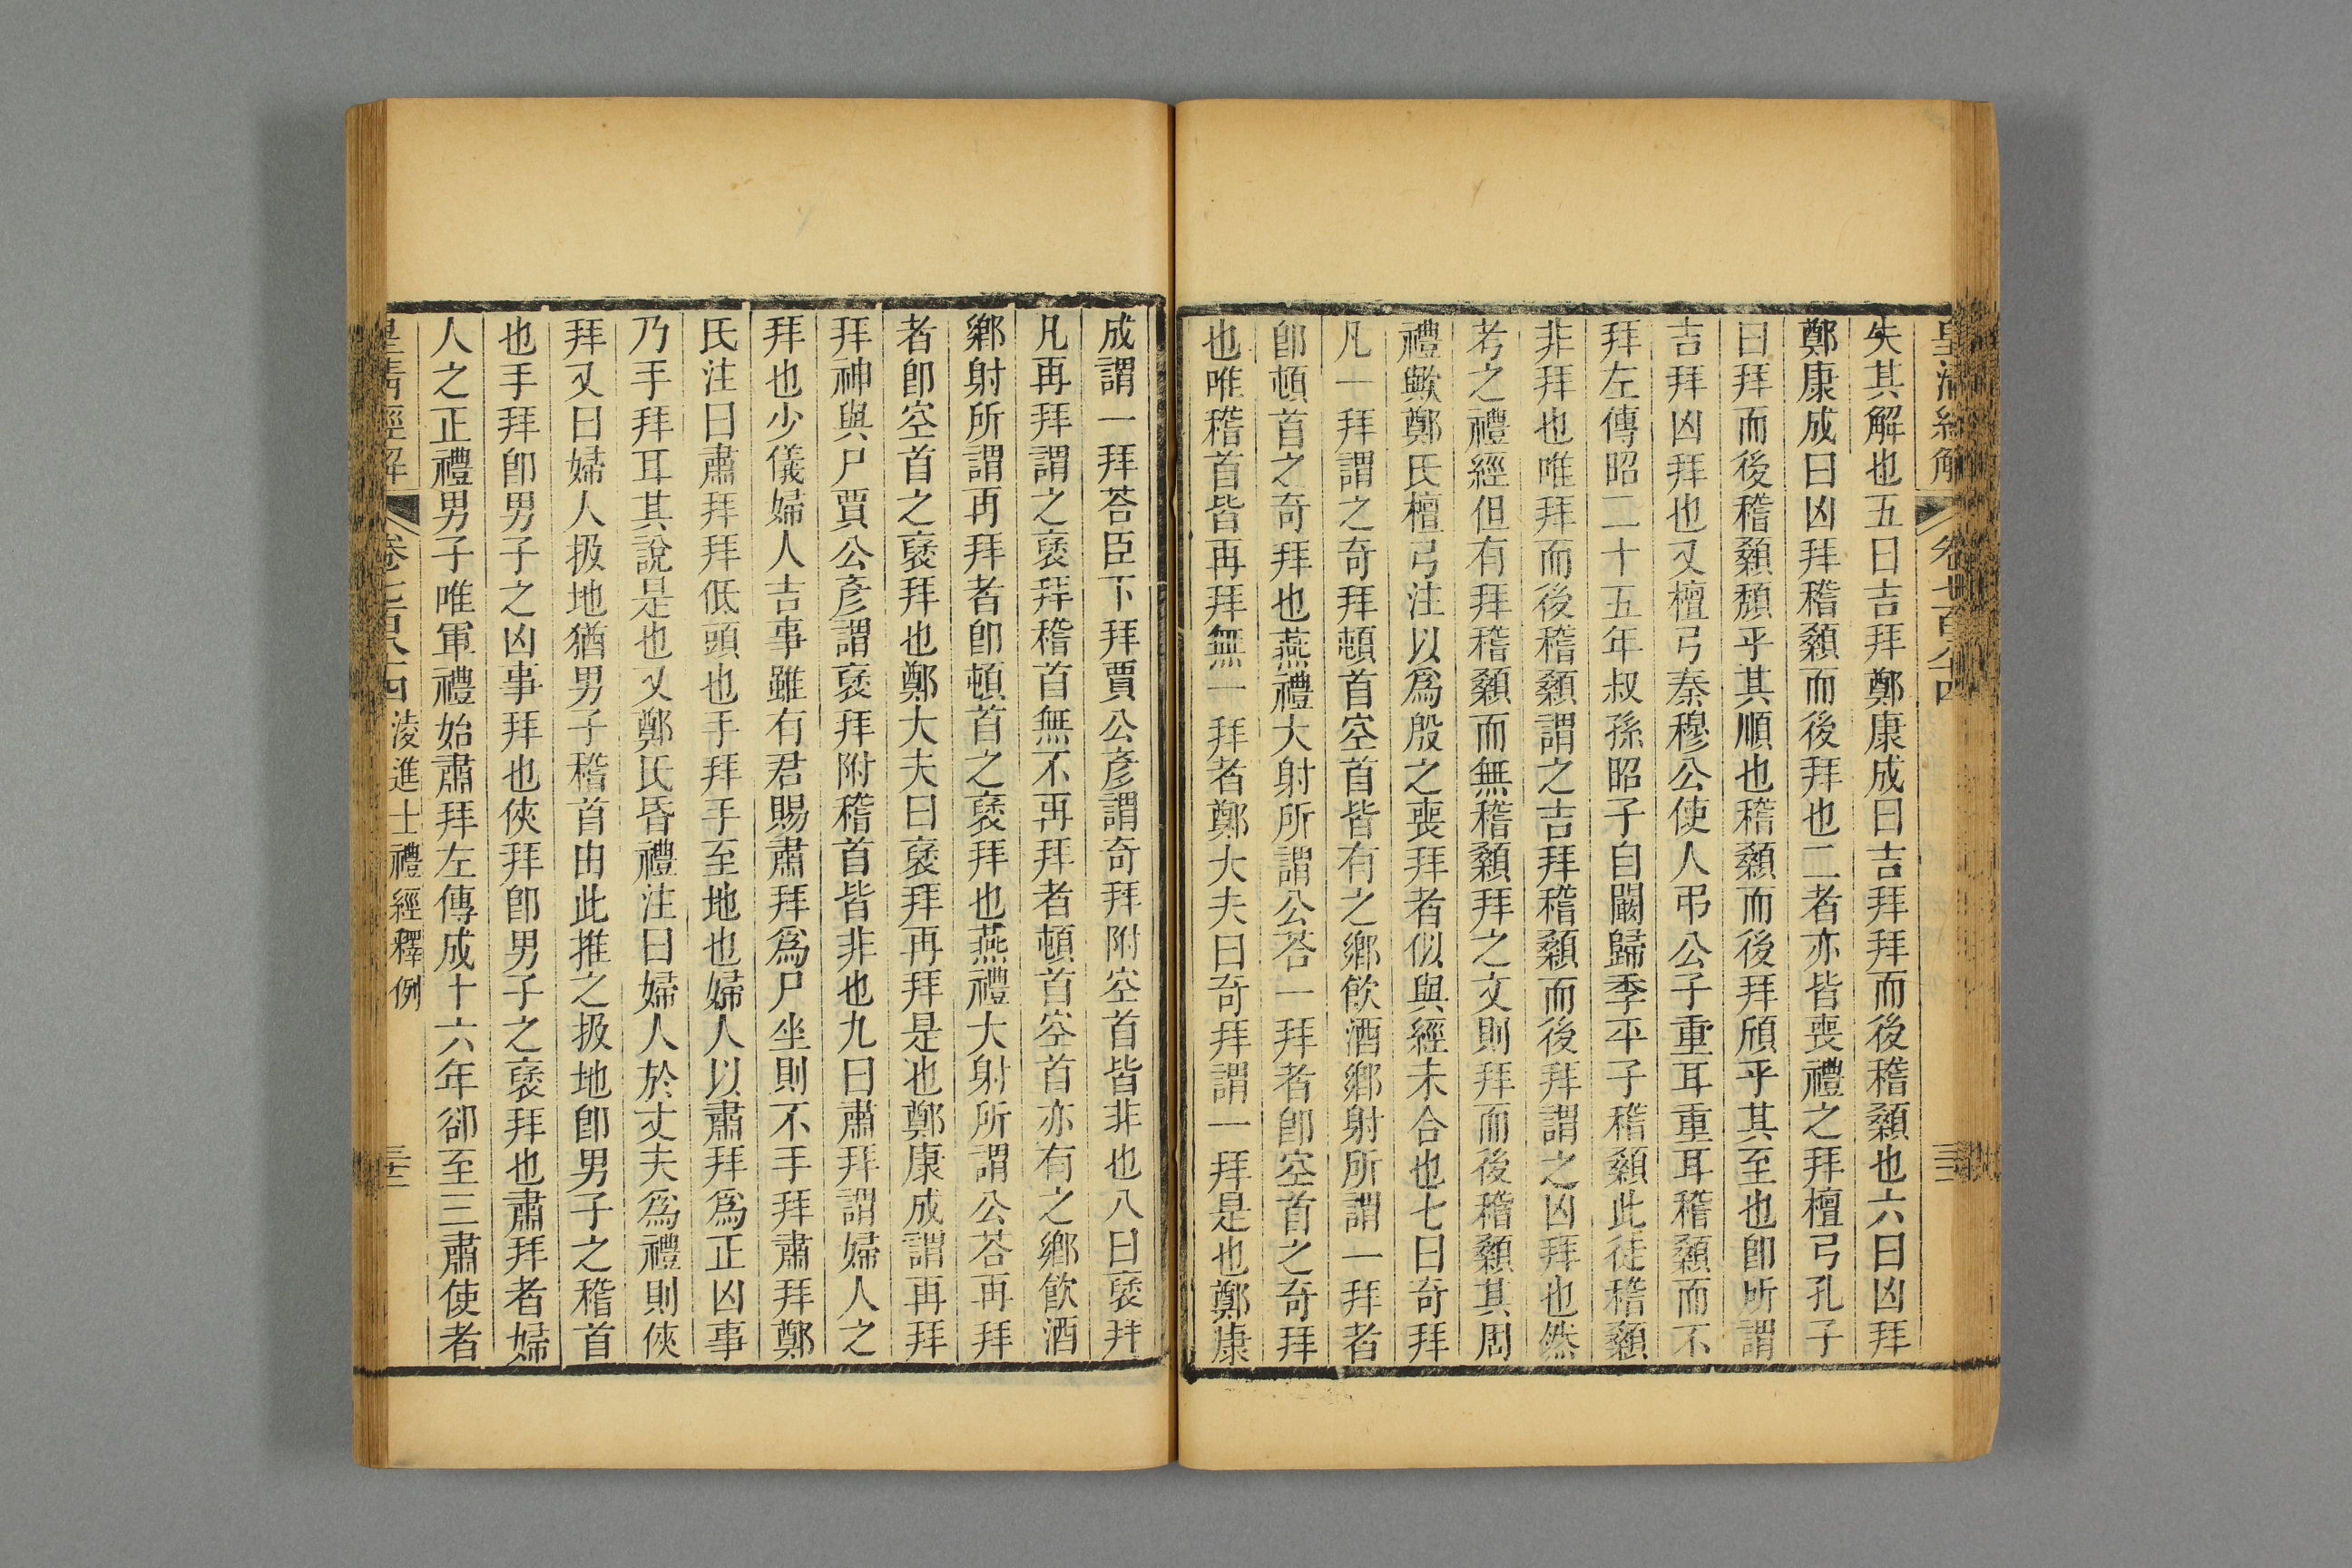 皇清經解
卷七百八十四
失其解也五曰吉拜鄭康成曰吉拜拜而後稽顙也六曰凶拜
鄭康成曰凶拜稽顙而後拜也二者亦皆喪禮之拜檀弓孔子
曰拜而後稽顙頹乎其順也稽顙而後拜頎乎其至也卽所謂
吉拜凶拜也又檀弓秦穆公使人弔公子重耳重耳稽顙而不
拜左傳昭二十五年叔孫昭子自闞歸季平子稽顙此徒稽顙
非拜也唯拜而後稽顙謂之吉拜稽顙而後拜謂之凶拜也然
考之禮經但有拜稽顙而無稽顙拜之文則拜而後稽顙其周
禮歟鄭氏檀弓注以爲殷之喪拜者似與經未合也七曰奇拜
凡一拜謂之奇拜頓首空首皆有之鄉飮酒鄉射所謂一拜者
卽頓首之奇拜也燕禮大射所謂公荅一拜者卽空首之奇拜
也唯稽首皆再拜無一拜者鄭大夫曰奇拜謂一拜是也鄭康
成謂一拜荅臣下拜賈公彥謂奇拜附空首皆非也八曰襃拜
凡再拜謂之襃拜稽首無不再拜者頓首空首亦有之鄉飮酒
鄉射所謂再拜者卽頓首之襃拜也燕禮大射所謂公荅再拜
者卽空首之襃拜也鄭大夫曰襃拜再拜是也鄭康成謂再拜
拜神與尸賈公彥謂襃拜附稽首皆非也九曰肅拜謂婦人之
拜也少儀婦人吉事雖有君賜肅拜爲尸坐則不手拜肅拜鄭
氏注曰肅拜拜低頭也手拜手至地也婦人以肅拜爲正凶事
乃手拜耳其說是也又鄭氏昏禮注曰婦人於丈夫爲禮則俠
拜又曰婦人扱地猶男子稽首由此推之扱地卽男子之稽首
也手拜卽男子之凶事拜也俠拜卽男子之襃拜也肅拜者婦
人之正禮男子唯軍禮始肅拜左傳成十六年卻至三肅使者
皇清經解
卷七百八十四
淩進士禮經釋例